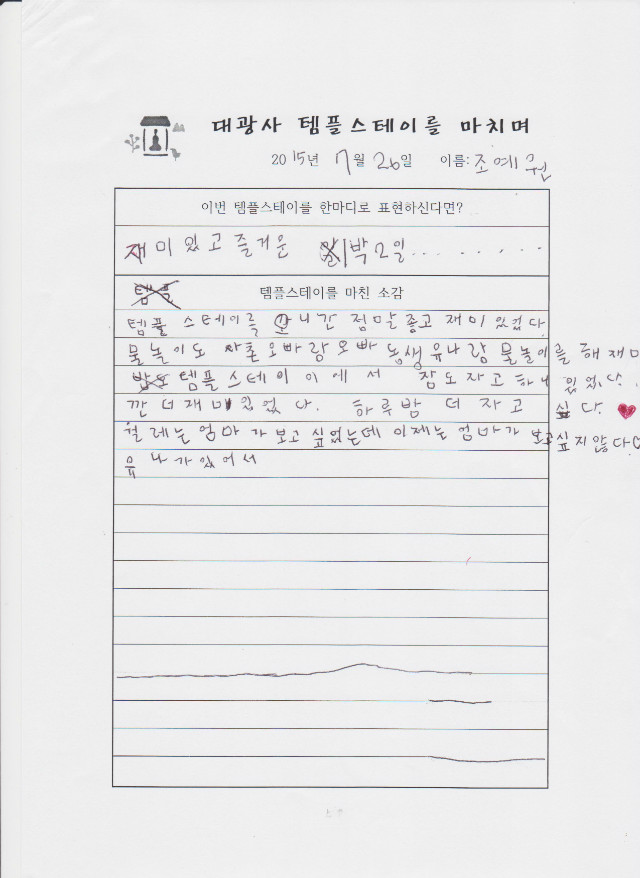 대광사 템플스테이를 마치며
2015년 7월 26일 이름: 조예원
이번 템플스테이를 한마디로 표현하신다면?
재미있고 즐거운 1박2일........
템플스테이를 마친 소감
템플 스테이를 오니간 점말 좋고 재미 있었다
물놀이도 사촌오빠랑 오빠 동생 유나랑 물놀이를 해 재미
템플스테이 이에서 잠도자고 하니 있었다.
깐 더 재미있었다. 하루밤 더 자고 싶다. ♥
원레는 엄마가 보고 싶었는데 이제는 엄마가 보고싶지 않다♡
유나가있어서